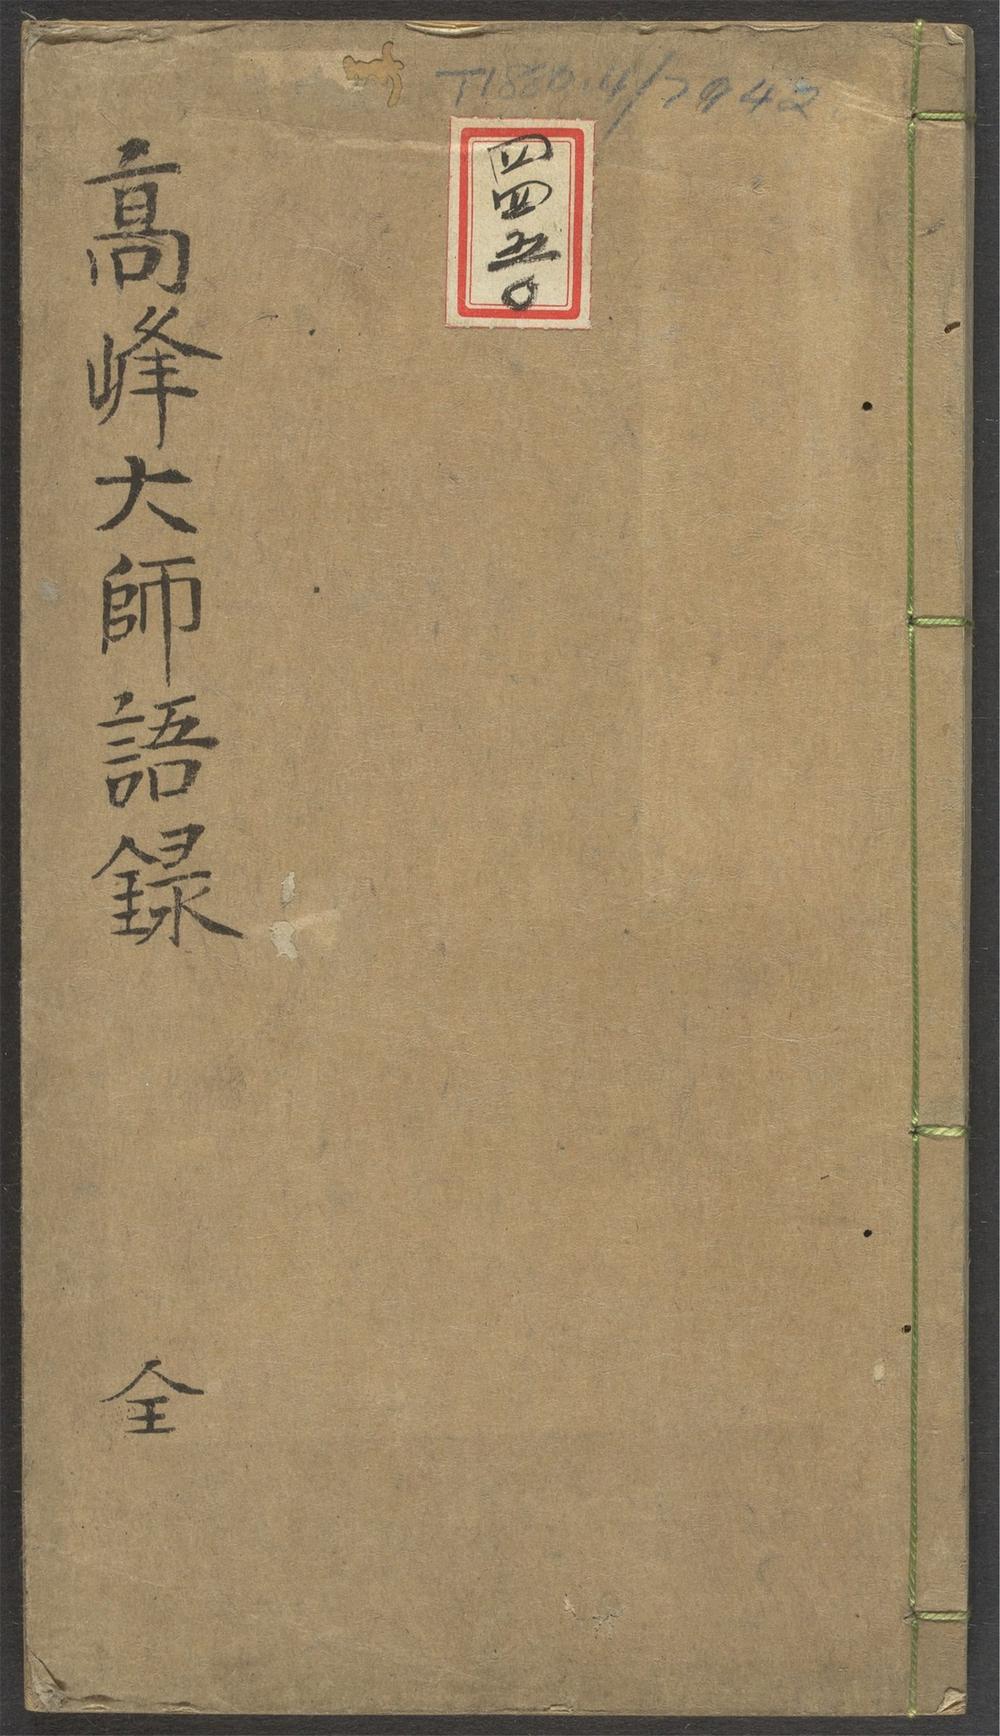 T1880.4/7942
四四五〇
高峰大師語録
全